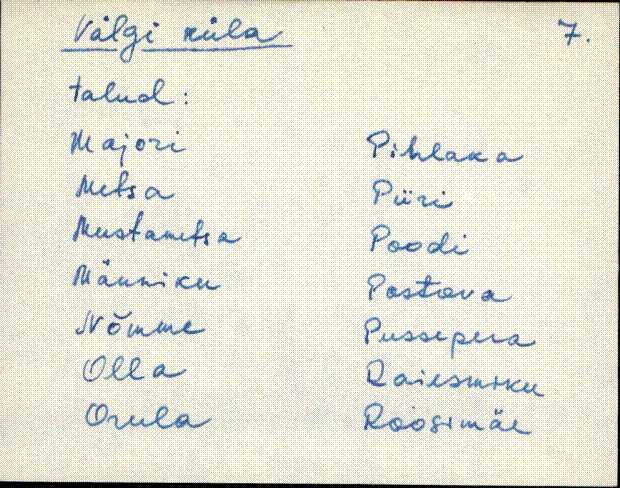 Välgi küla 7.
talud:
Majori
Metsa
Mustametsa
Männiku
Nõmme
Olla
Orula
Pihlaka
Piiri
Poodi
Postova
Pussepera
Raiesmiku
Roosimäe